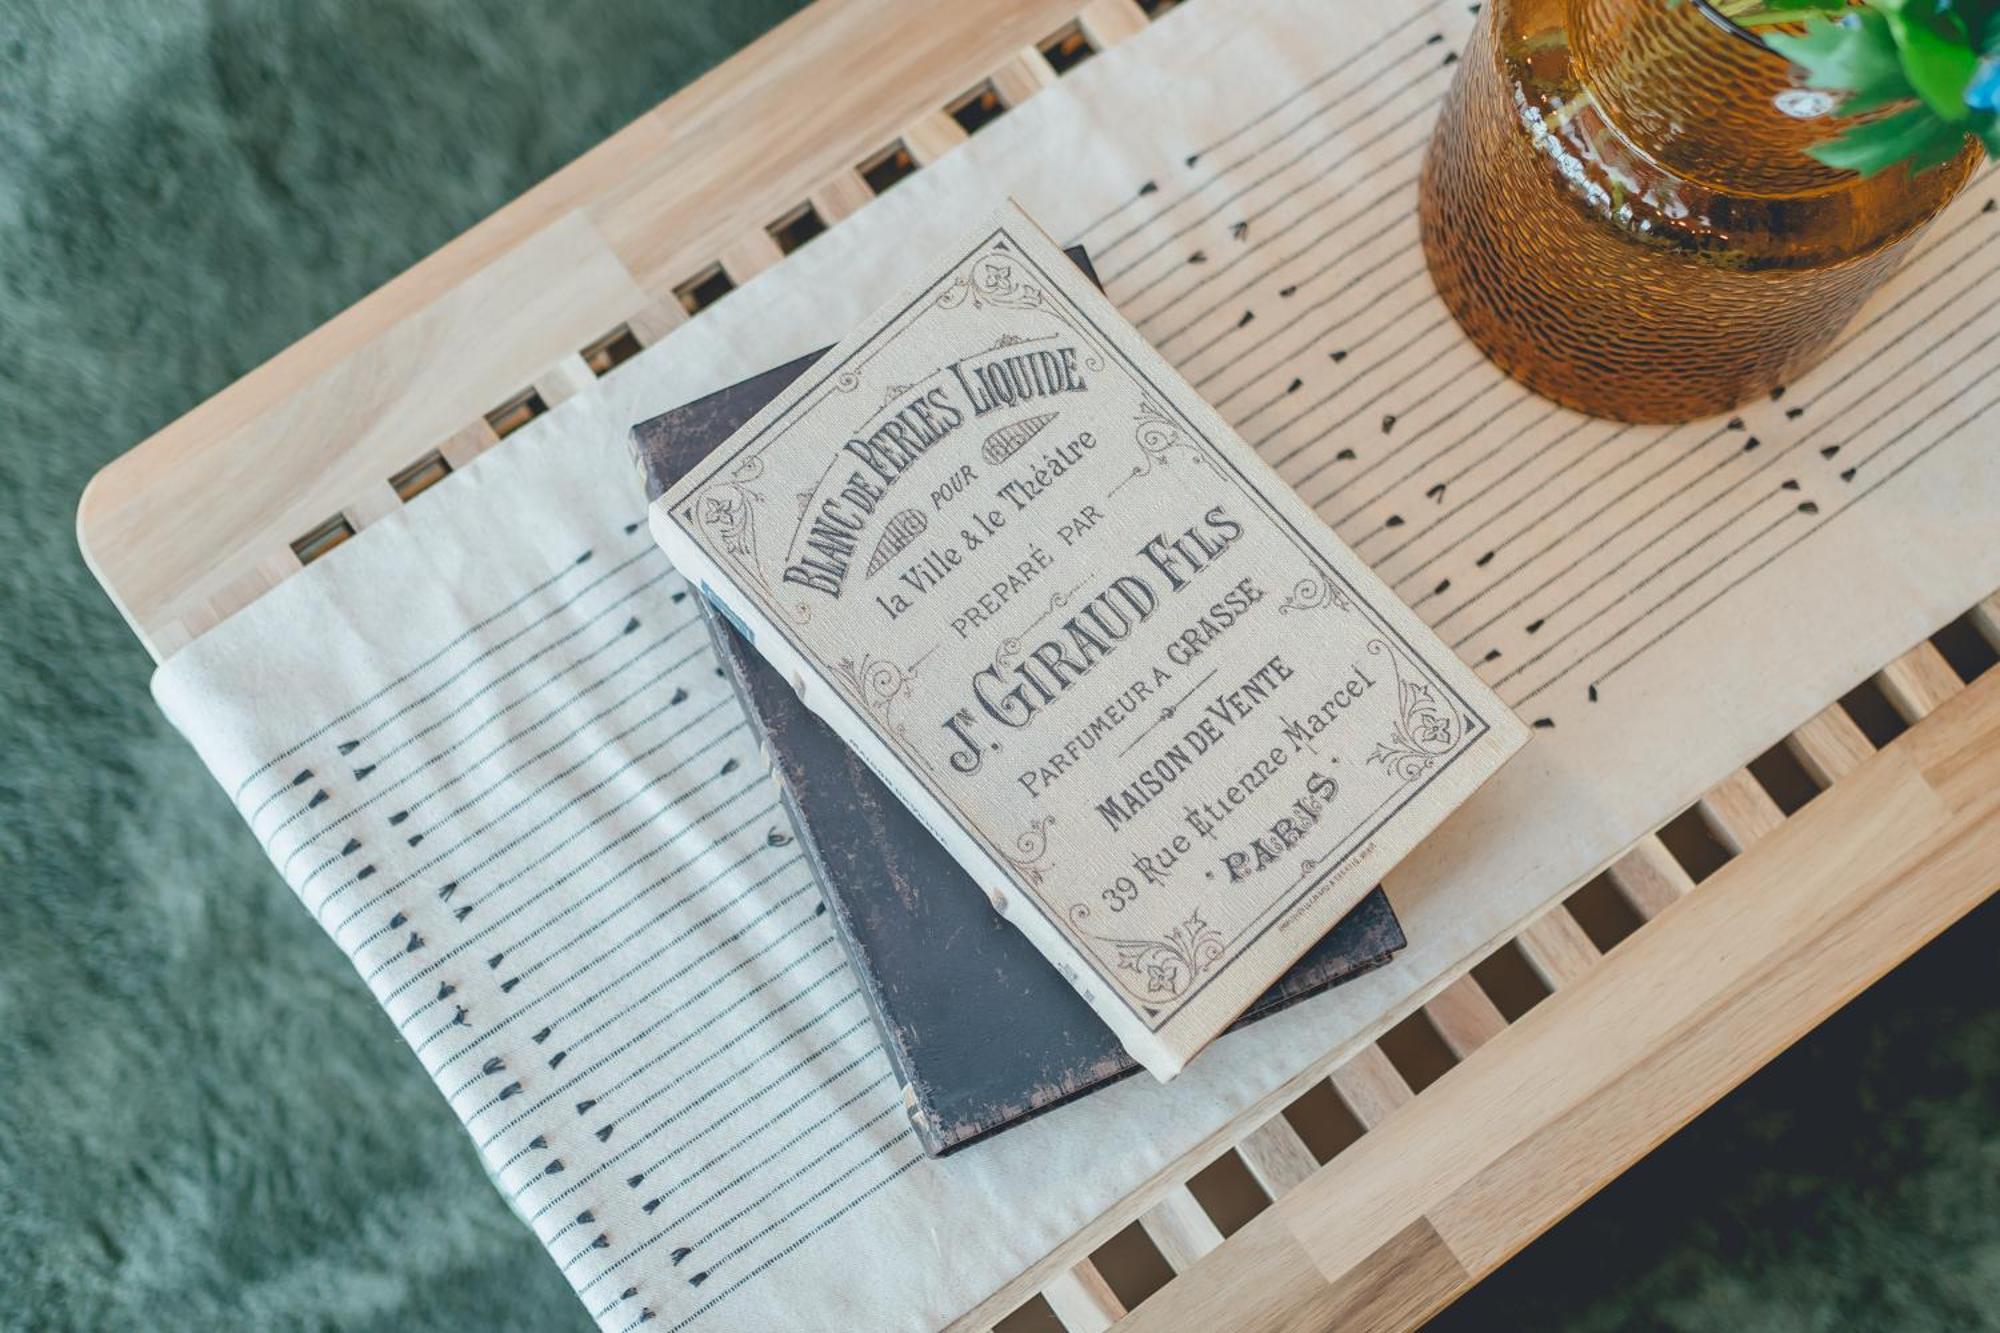 BLANC DE PERLES LIQUIDE
POUR
la Ville & le Théâtre
PREPARÉ PAR
JN. GIRAUD FILS
PARFUMEUR A GRASSE
MAISON DE VENTE
39 Rue Etienne Marcel
· PARIS ·